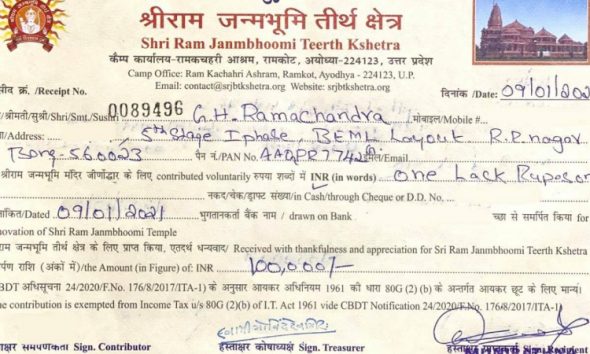 श्रीराम जन्मभूमि तीर्थ क्षेत्र
Shri Ram Janmbhoomi Teerth Kshetra
कैम्प कार्यालय-रामकचहरी आश्रम, रामकोट, अयोध्या-224123, उत्तर प्रदेश
Camp Office: Ram Kachahri Ashram, Ramkot, Ayodhya - 224123, U.P.
Email: contact@srjbtkshetra.org Website: srjbtkshetra.org
सीद क्र. /Receipt No. दिनांक /Date: 09/01/202
0089496
/श्रीमती/सुश्री/Shri/Smt./Sushri G.H. Ramachandra मोबाइल/Mobile #
/Address: 5th Stage I phase, BEML Layout R.R.nagar
Bang-560023 पैन नं/PAN No. AAQPR7742 ईमेल/Email
श्रीराम जन्मभूमि मंदिर जीर्णोद्धार के लिए contributed voluntarily रुपया शब्दों में INR (in words) one Lack Rupees on
नकद/चेक/ड्राफ्ट संख्या/in Cash/through Cheque or D.D. No.
कित/Dated 09/01/2021 भुगतानकर्ता बैंक नाम / drawn on Bank च्छा से समर्पित किया for
novation of Shri Ram Janmbhoomi Temple
म जन्मभूमि तीर्थ क्षेत्र के लिए प्राप्त किया, एतदर्थ धन्यवाद/ Received with thankfulness and appreciation for Sri Ram Janmbhoomi Teerth Kshetra
र्पण राशि (अंकों में)/the Amount (in Figure) of: INR 100,000/-
BDT अधिसूचना 24/2020/F.No. 176/8/2017/ITA-1) के अनुसार आयकर अधिनियम 1961 की धारा 80G (2)(b) के अन्तर्गत आयकर छूट के लिए मान्य।
e contribution is exempted from Income Tax u/s 80G (2)(b) of I.T. Act 1961 vide CBDT Notification 24/2020/F.No. 176/8/2017/ITA-1)
क्षर समपणकर्ता Sign. Contributor हस्ताक्षर कोषाध्यक्ष Sign. Treasurer हस्ताक्षर Sign. Recipient